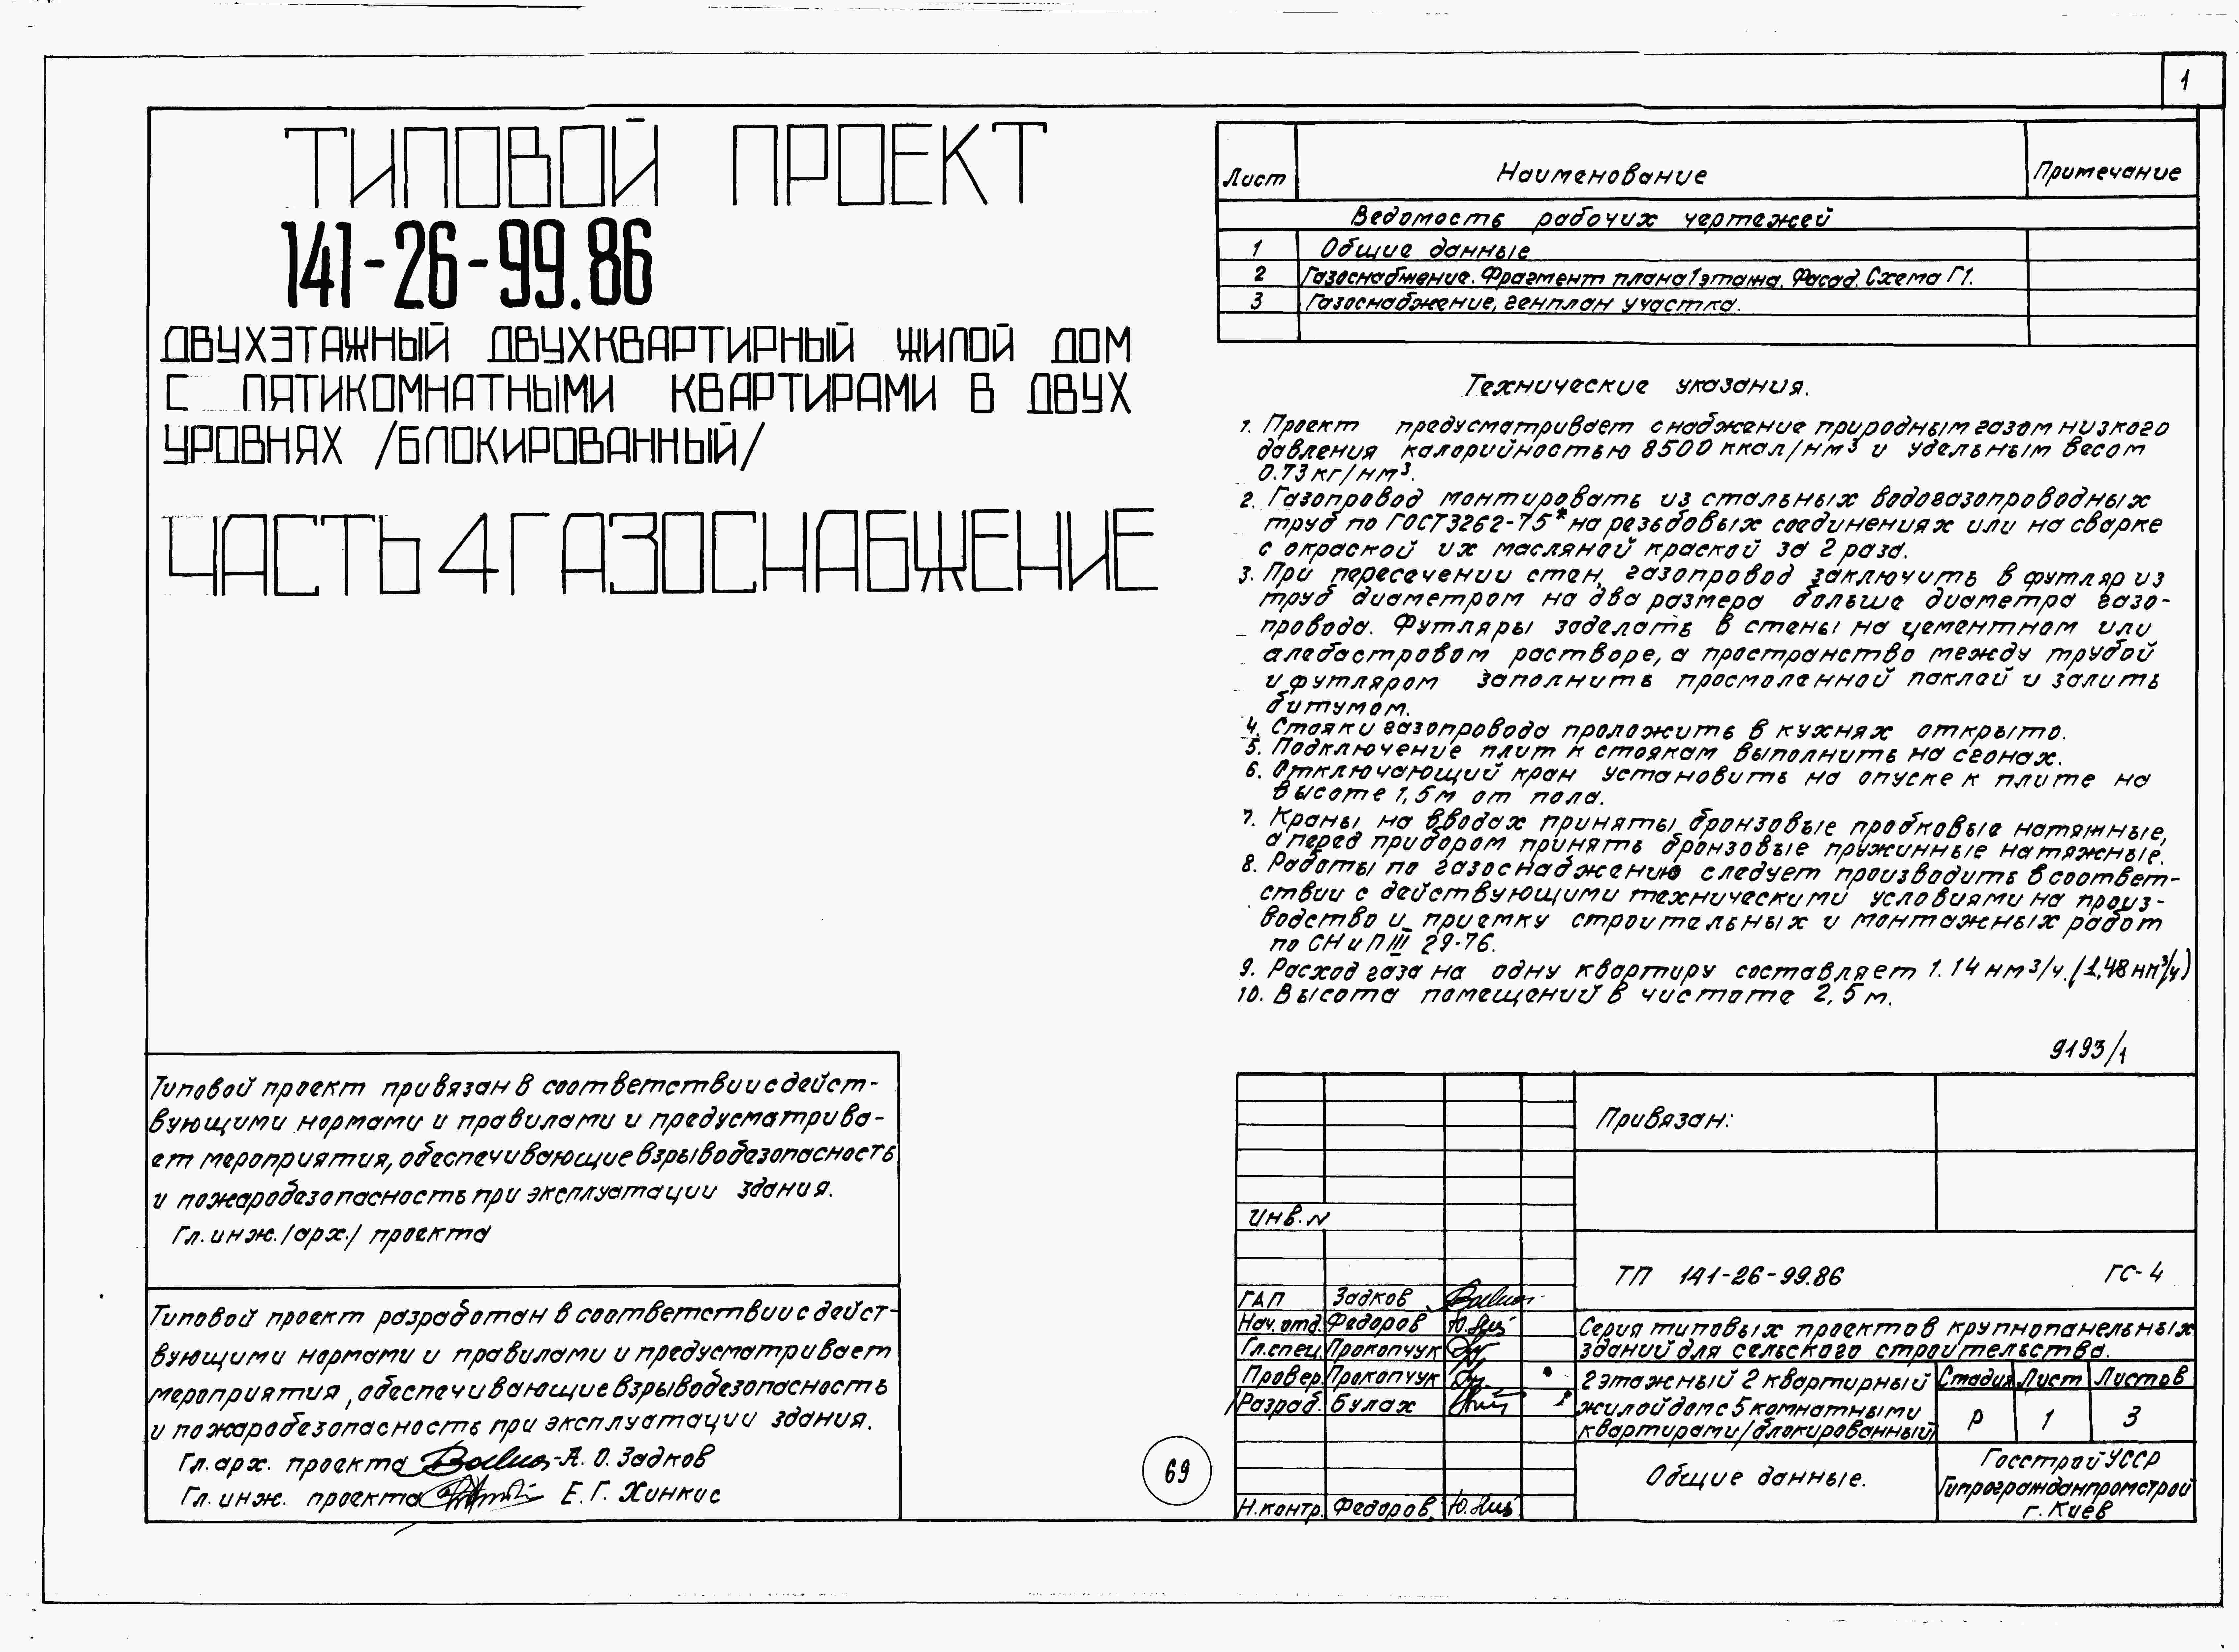 1
ТИПОВОЙ ПРОЕКТ
141-26-99.86
ДВУХЭТАЖНЫЙ ДВУХКВАРТИРНЫЙ ЖИЛОЙ ДОМ
С ПЯТИКОМНАТНЫМИ КВАРТИРАМИ В ДВУХ
УРОВНЯХ /БЛОКИРОВАННЫЙ/
ЧАСТЬ 4 ГАЗОСНАБЖЕНИЕ
Лист Наименование Примечание
Ведомость рабочих чертежей
1 Общие данные
2 Газоснабжение. Фрагмент плана 1 этажа. Фасад. Схема Г1.
3 Газоснабжение, генплан участка.
Технические указания.
1. Проект предусматривает снабжение природным газом низкого
давления калорийностью 8500 ккал/нм³ и удельным весом
0.73 кг/нм³.
2. Газопровод монтировать из стальных водогазопроводных
труб по ГОСТ3262-75* на резьбовых соединениях или на сварке
с окраской их масляной краской за 2 раза.
3. При пересечении стен, газопровод заключить в футляр из
труб диаметром на два размера больше диаметра газо-
провода. Футляры заделать в стены на цементном или
алебастровом растворе, а пространство между трубой
и футляром заполнить просмоленной паклей и залить
битумом.
4. Стояки газопровода проложить в кухнях открыто.
5. Подключение плит к стоякам выполнить на сгонах.
6. Отключающий кран установить на опуске к плите на
высоте 1,5м от пола.
7. Краны на вводах приняты бронзовые пробковые натяжные,
а перед прибором принять бронзовые пружинные натяжные.
8. Работы по газоснабжению следует производить в соответ-
ствии с действующими техническими условиями на произ-
водство и приемку строительных и монтажных работ
по СНиП III 29-76.
9. Расход газа на одну квартиру составляет 1.14 нм³/ч. (1,48 нм³/ч)
10. Высота помещений в чистоте 2,5 м.
9193/1
Типовой проект привязан в соответствии с дейст-
вующими нормами и правилами и предусматрива-
ет мероприятия, обеспечивающие взрывобезопасность
и пожаробезопасность при эксплуатации здания.
Гл. инж. /арх./ проекта
Типовой проект разработан в соответствии с дейст-
вующими нормами и правилами и предусматривает
мероприятия, обеспечивающие взрывобезопасность
и пожаробезопасность при эксплуатации здания.
Гл. арх. проекта А. О. Задков
Гл. инж. проекта Е. Г. Хинкис
69
Привязан:
Инв. N
ТП 141-26-99.86 ГС-4
ГАП Задков
Нач. отд. Федоров
Гл. спец. Прокопчук
Провер. Прокопчук
Разраб. Булах
Н. контр. Федоров
Серия типовых проектов крупнопанельных
зданий для сельского строительства.
2 этажный 2 квартирный
жилой дом с 5 комнатными
квартирами/блокированный/
Стадия Лист Листов
Р 1 3
Общие данные.
Госстрой УССР
Гипрогражданпромстрой
г. Киев